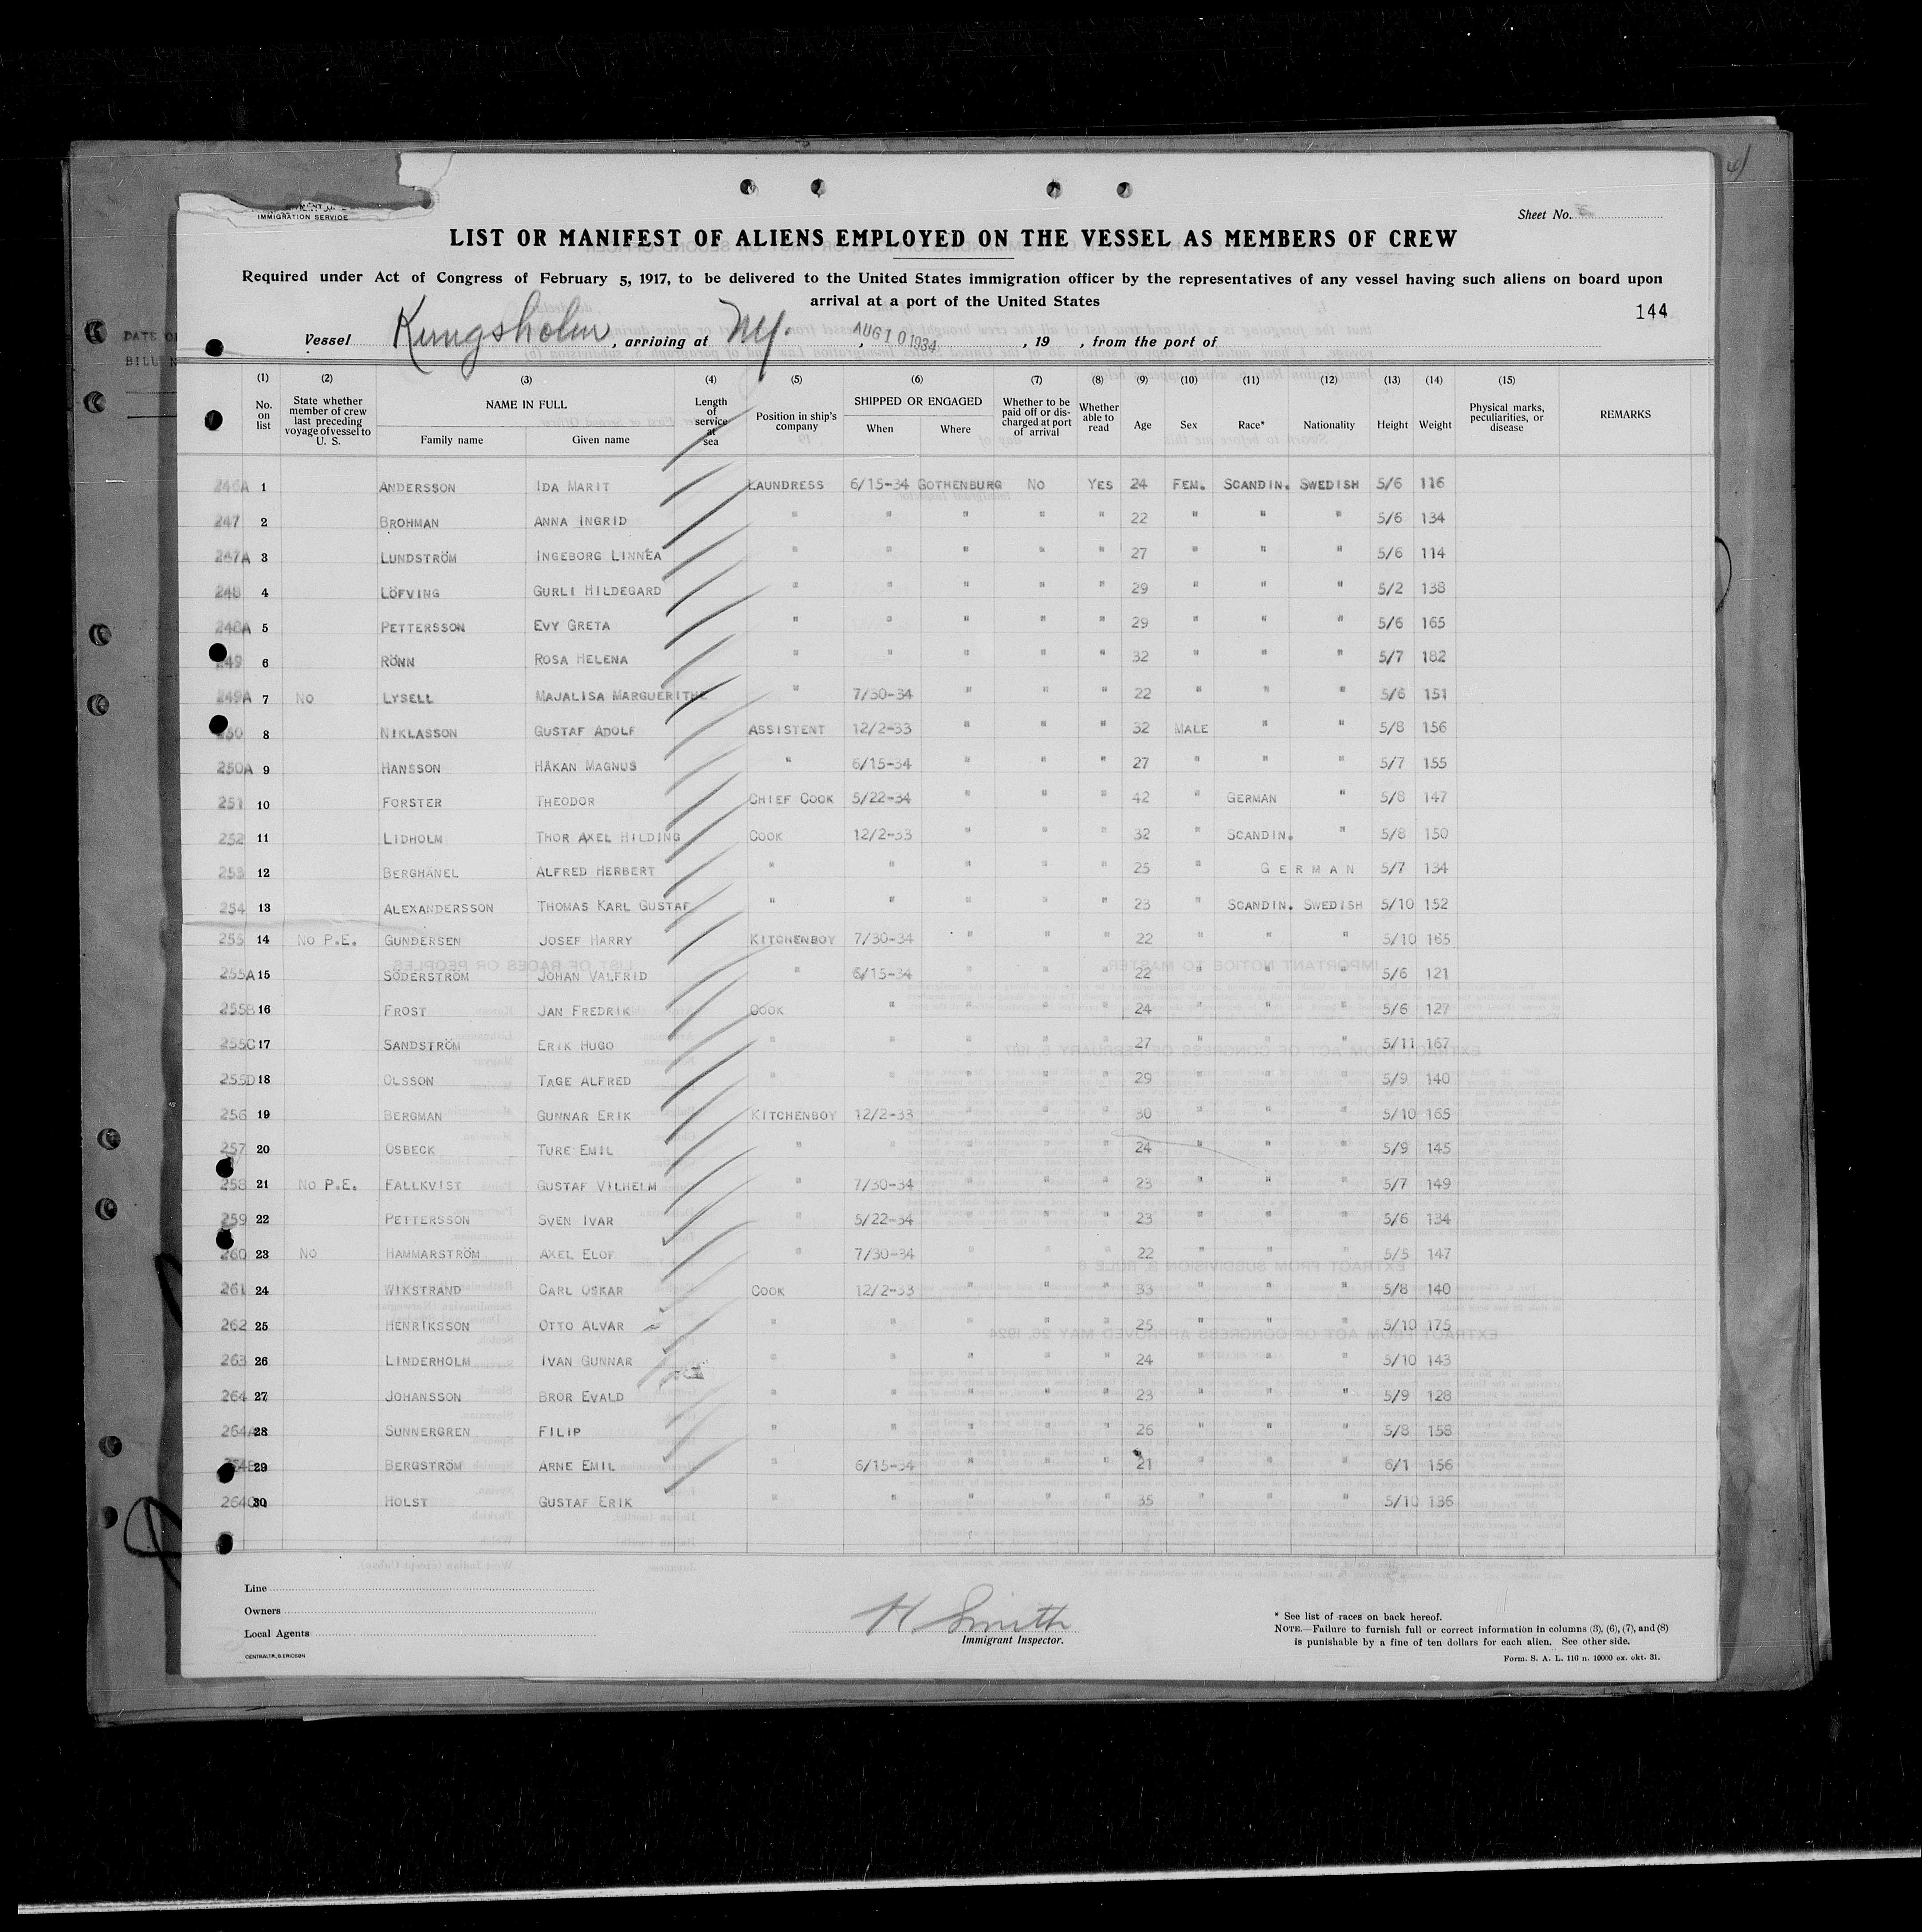 IMMIGRATION SERVICE
Sheet No.
LIST OR MANIFEST OF ALIENS EMPLOYED ON THE VESSEL AS MEMBERS OF CREW
Required under Act of Congress of February 5, 1917, to be delivered to the United States immigration officer by the representatives of any vessel having such aliens on board upon
arrival at a port of the United States
144
Vessel Kungsholm, arriving at NY., AUG 10 1934, 19 , from the port of
(1) (2) (3) (4) (5) (6) (7) (8) (9) (10) (11) (12) (13) (14) (15)
No. on list
State whether member of crew last preceding voyage of vessel to U. S.
NAME IN FULL
Family name Given name
Length of service at sea
Position in ship's company
SHIPPED OR ENGAGED
When Where
Whether to be paid off or discharged at port of arrival
Whether able to read
Age Sex Race* Nationality Height Weight
Physical marks, peculiarities, or disease
REMARKS
246A 1 ANDERSSON IDA MARIT LAUNDRESS 6/15-34 GOTHENBURG NO YES 24 FEM. SCANDIN. SWEDISH 5/6 116
247 2 BROHMAN ANNA INGRID " " " " " 22 " " " 5/6 134
247A 3 LUNDSTRÖM INGEBORG LINNÉA " " " " " 27 " " " 5/6 114
248 4 LÖFVING GURLI HILDEGARD " " " " " 29 " " " 5/2 138
248A 5 PETTERSSON EVY GRETA " " " " " 29 " " " 5/6 165
249 6 RÖNN ROSA HELENA " " " " " 32 " " " 5/7 182
249A 7 NO LYSELL MAJALISA MARGUERITHE " 7/30-34 " " " 22 " " " 5/6 151
250 8 NIKLASSON GUSTAF ADOLF ASSISTENT 12/2-33 " " " 32 MALE " " 5/8 156
250A 9 HANSSON HÅKAN MAGNUS " 6/15-34 " " " 27 " " " 5/7 155
251 10 FORSTER THEODOR CHIEF COOK 5/22-34 " " " 42 " GERMAN " 5/8 147
252 11 LIDHOLM THOR AXEL HILDING COOK 12/2-33 " " " 32 " SCANDIN. " 5/8 150
253 12 BERGHÄNEL ALFRED HERBERT " " " " " 25 " GERMAN 5/7 134
254 13 ALEXANDERSSON THOMAS KARL GUSTAF " " " " " 23 " SCANDIN. SWEDISH 5/10 152
255 14 NO P.E. GUNDERSEN JOSEF HARRY KITCHENBOY 7/30-34 " " " 22 " " " 5/10 165
255A 15 SÖDERSTRÖM JOHAN VALFRID " 6/15-34 " " " 22 " " " 5/6 121
255B 16 FROST JAN FREDRIK COOK " " " " 24 " " " 5/6 127
255C 17 SANDSTRÖM ERIK HUGO " " " " " 27 " " " 5/11 167
255D 18 OLSSON TAGE ALFRED " " " " " 29 " " " 5/9 140
256 19 BERGMAN GUNNAR ERIK KITCHENBOY 12/2-33 " " " 30 " " " 5/10 165
257 20 OSBECK TURE EMIL " " " " " 24 " " " 5/9 145
258 21 NO P.E. FALLKVIST GUSTAF VILHELM " 7/30-34 " " " 23 " " " 5/7 149
259 22 PETTERSSON SVEN IVAR " 5/22-34 " " " 23 " " " 5/6 134
260 23 NO HAMMARSTRÖM AXEL ELOF " 7/30-34 " " " 22 " " " 5/5 147
261 24 WIKSTRAND CARL OSKAR COOK 12/2-33 " " " 33 " " " 5/8 140
262 25 HENRIKSSON OTTO ALVAR " " " " " 25 " " " 5/10 175
263 26 LINDERHOLM IVAN GUNNAR " " " " " 24 " " " 5/10 143
264 27 JOHANSSON BROR EVALD " " " " " 23 " " " 5/9 128
264A 28 SUNNERGREN FILIP " " " " " 26 " " " 5/8 158
264B 29 BERGSTRÖM ARNE EMIL " 6/15-34 " " " 21 " " " 6/1 156
264C 30 HOLST GUSTAF ERIK " " " " " 35 " " " 5/10 136
Line
Owners
Local Agents
CENTRALTR, G. ERICSON
H Smith
Immigrant Inspector.
* See list of races on back hereof.
NOTE.—Failure to furnish full or correct information in columns (3), (6), (7), and (8)
is punishable by a fine of ten dollars for each alien. See other side.
Form. S. A. L. 116 n. 10000 ex. okt. 31.